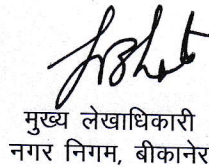 मुख्य लेखाधिकारी
नगर निगम, बीकानेर